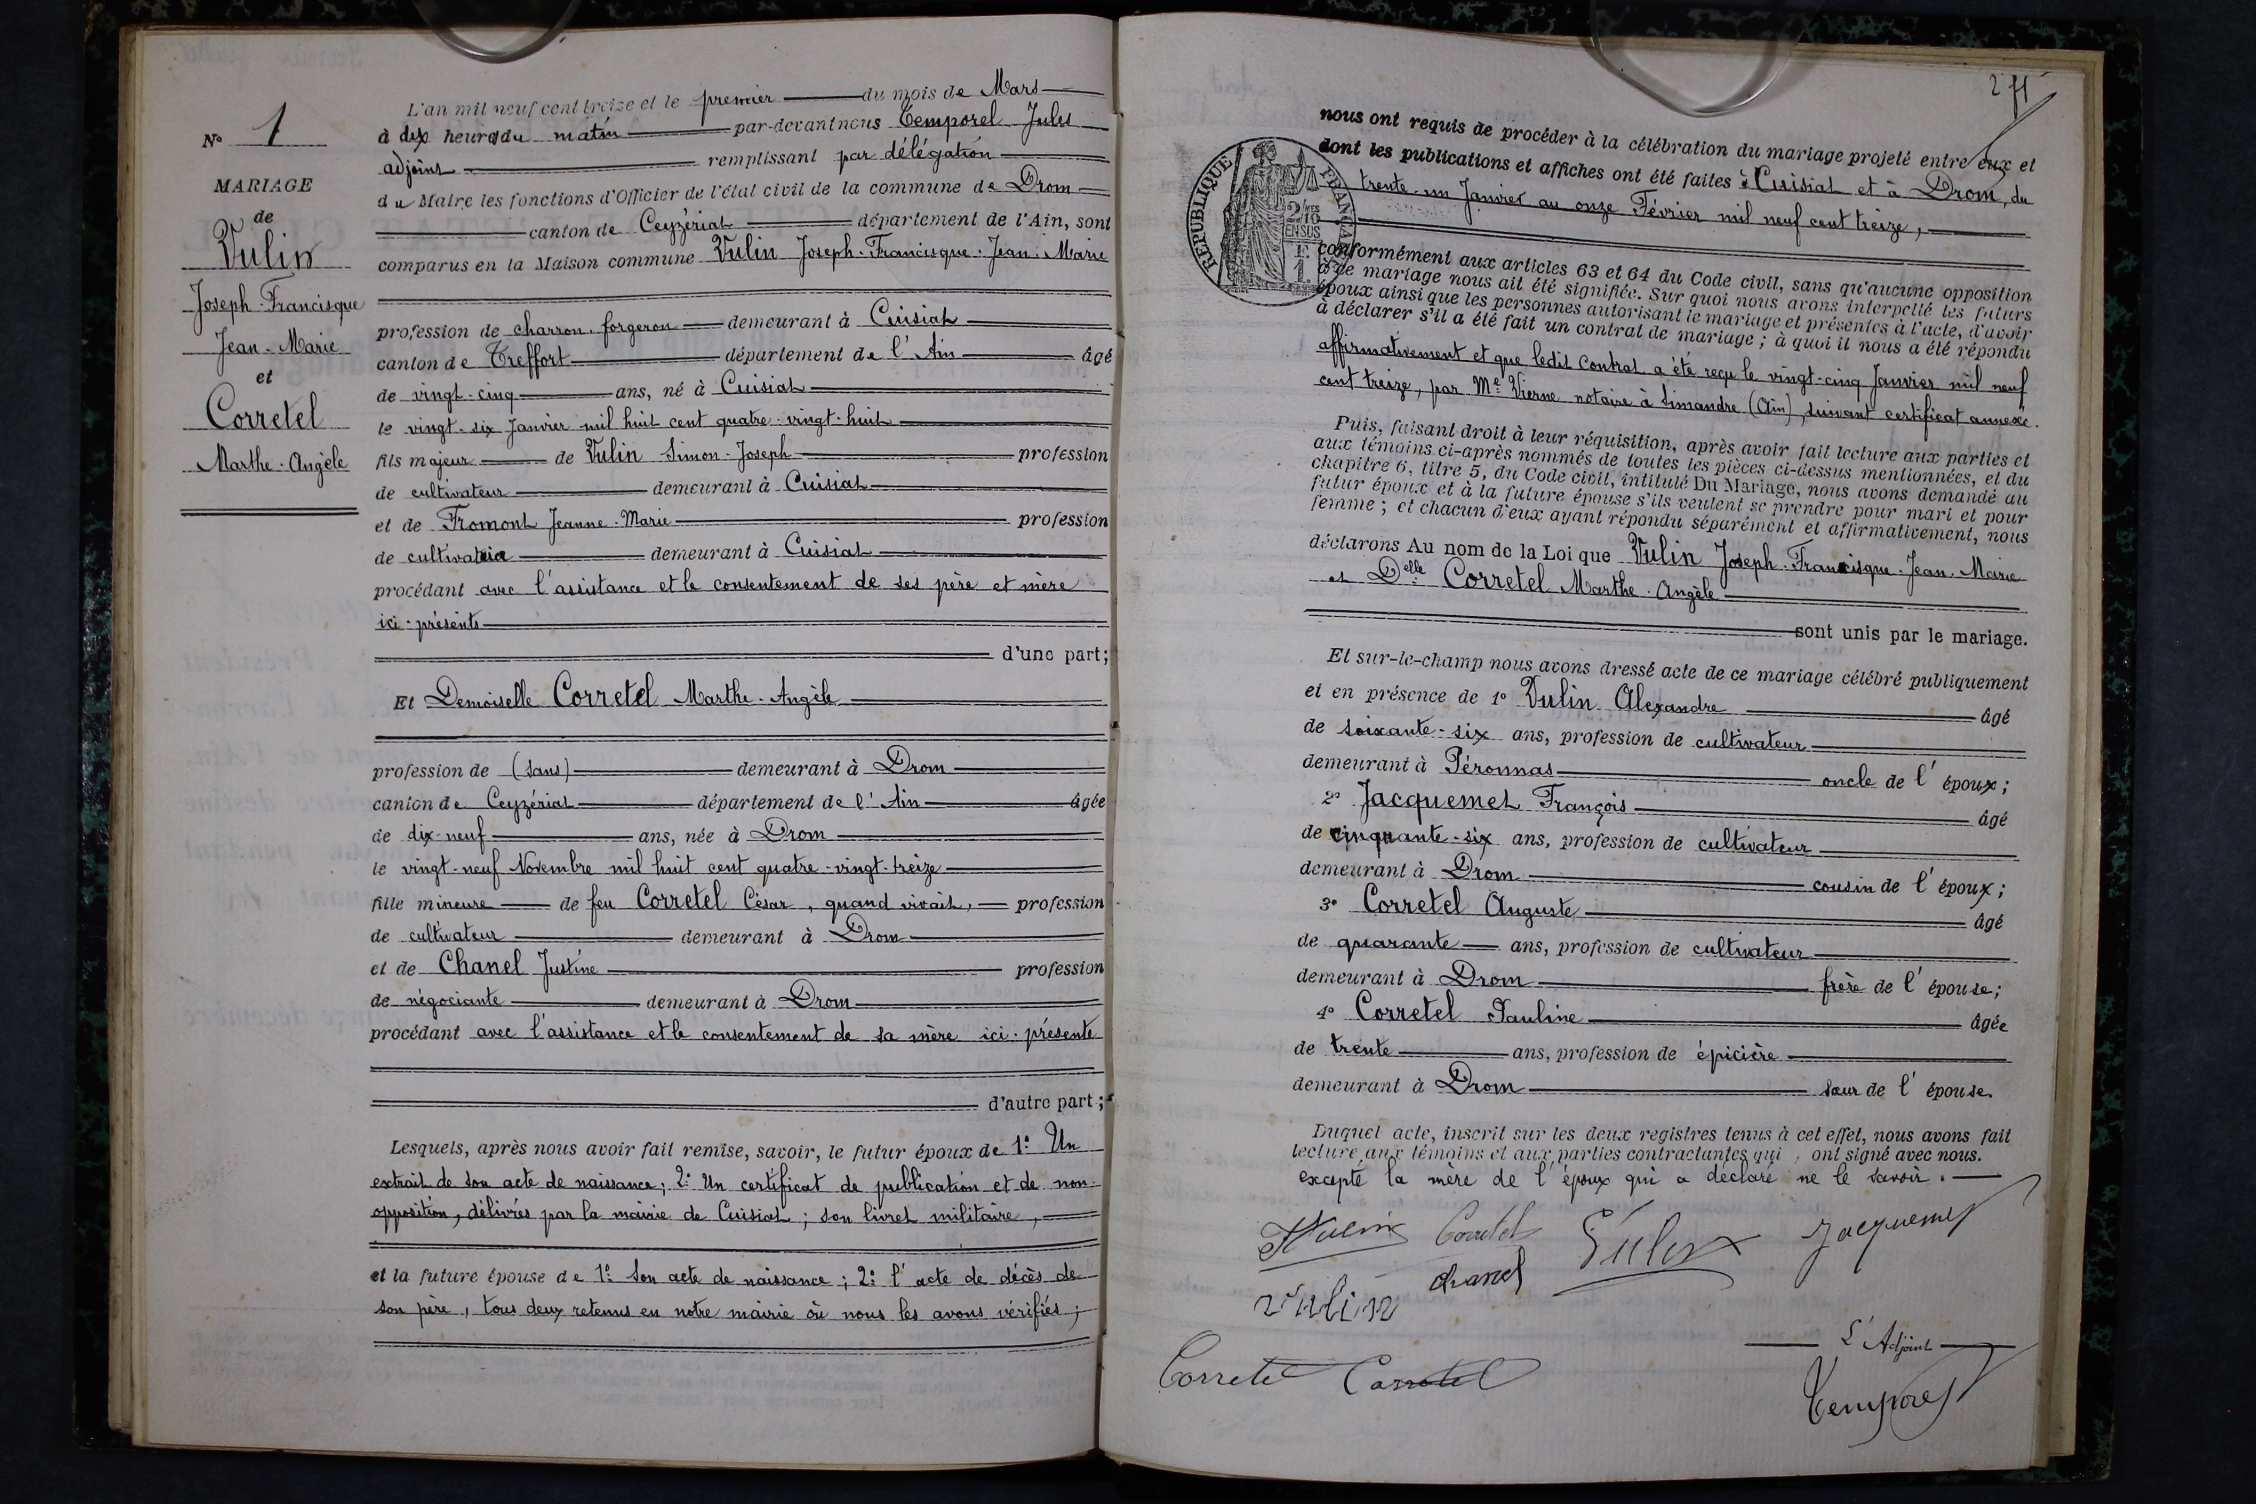 N° 1
MARIAGE
de
Vulin
Joseph-Francisque
Jean-Marie
et
Corretel
Marthe-Angèle
L'an mil neuf cent treize et le premier du mois de Mars
à dix heures du matin par-devant nous Temporel Jules
adjoint remplissant par délégation
du Maire les fonctions d'Officier de l'état civil de la commune de Drom
canton de Ceyzériat département de l'Ain, sont
comparus en la Maison commune Vulin Joseph-Francisque-Jean-Marie
profession de charron-forgeron demeurant à Cuisiat
canton de Treffort département de l'Ain âgé
de vingt-cinq ans, né à Cuisiat
le vingt-six Janvier mil huit cent quatre-vingt-huit
fils majeur de Vulin Simon-Joseph profession
de cultivateur demeurant à Cuisiat
et de Fromont Jeanne-Marie profession
de cultivatrice demeurant à Cuisiat
procédant avec l'assistance et le consentement de ses père et mère
ici-présents
d'une part;
Et Demoiselle Corretel Marthe-Angèle
profession de (sans) demeurant à Drom
canton de Ceyzériat département de l'Ain âgée
de dix-neuf ans, née à Drom
le vingt-neuf Novembre mil huit cent quatre-vingt-treize
fille mineure de feu Corretel César, quand vivait, profession
de cultivateur demeurant à Drom
et de Chanel Justine profession
de négociante demeurant à Drom
procédant avec l'assistance et le consentement de sa mère ici-présente
d'autre part;
Lesquels, après nous avoir fait remise, savoir, le futur époux de 1° Un
extrait de son acte de naissance; 2° Un certificat de publication et de non-
opposition, délivrés par la mairie de Cuisiat; son livret militaire,
et la future épouse de 1° son acte de naissance; 2° l'acte de décès de
son père, tous deux retenus en notre mairie où nous les avons vérifiés;
nous ont requis de procéder à la célébration du mariage projeté entre eux et
dont les publications et affiches ont été faites à Cuisiat et à Drom, du
trente-un Janvier au onze Février mil neuf cent treize,
RÉPUBLIQUE FRANÇAISE
2/10
EN SUS
1 F.
conformément aux articles 63 et 64 du Code civil, sans qu'aucune opposition
à ce mariage nous ait été signifiée. Sur quoi nous avons interpellé les futurs
époux ainsi que les personnes autorisant le mariage et présentes à l'acte, d'avoir
à déclarer s'il a été fait un contrat de mariage; à quoi il nous a été répondu
affirmativement et que ledit contrat a été reçu le vingt-cinq Janvier mil neuf
cent treize, par Me Vierne notaire à Simandre (Ain), suivant certificat annexé.
Puis, faisant droit à leur réquisition, après avoir fait lecture aux parties et
aux témoins ci-après nommés de toutes les pièces ci-dessus mentionnées, et du
chapitre 6, titre 5, du Code civil, intitulé Du Mariage, nous avons demandé au
futur époux et à la future épouse s'ils veulent se prendre pour mari et pour
femme; et chacun d'eux ayant répondu séparément et affirmativement, nous
déclarons Au nom de la Loi que Vulin Joseph-Francisque-Jean-Marie
et Delle Corretel Marthe-Angèle
sont unis par le mariage.
Et sur-le-champ nous avons dressé acte de ce mariage célébré publiquement
et en présence de 1° Vulin Alexandre âgé
de soixante-six ans, profession de cultivateur
demeurant à Péronnas oncle de l'époux;
2° Jacquemet François âgé
de cinquante-six ans, profession de cultivateur
demeurant à Drom cousin de l'époux;
3° Corretel Auguste âgé
de quarante ans, profession de cultivateur
demeurant à Drom frère de l'épouse;
4° Corretel Pauline âgée
de trente ans, profession de épicière
demeurant à Drom sœur de l'épouse.
Duquel acte, inscrit sur les deux registres tenus à cet effet, nous avons fait
lecture aux témoins et aux parties contractantes qui, ont signé avec nous.
excepté la mère de l'époux qui a déclaré ne le savoir.
Vulin Corretel Vulin Jacquemet
Vulin Chanel
L'Adjoint
Corretel Corretel
Temporel